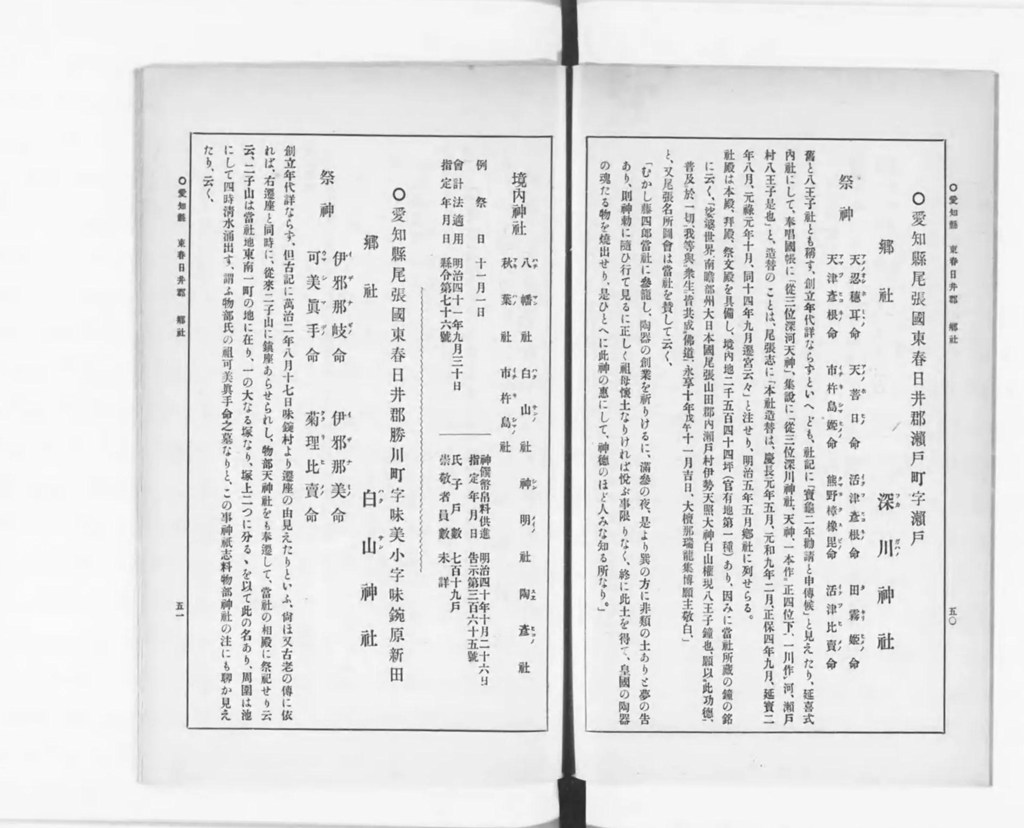 ○愛知縣 東春日井郡 鄕社
五〇
○愛知縣尾張國東春日井郡瀨戸町字瀨戸
鄕社 深川神社
祭神 天忍穗耳命 天菩日命 活津彥根命 田霧姬命
天津彥根命 市杵島姬命 熊野樟橡毘命 活津比賣命
舊と八王子社とも稱す、創立年代詳ならずといへども、社記に「寶龜二年勸請と申傳候」と見えたり、延喜式
內社にして、奉唱國帳に「從三位深河天神」、集說に「從三位深川神社、天神、一本作正四位下、一川作河、瀨戸
村八王子是也」と、造替のことは、尾張志に「本社造替は、慶長元年五月、元和九年二月、正保四年九月、延寶二
年八月、元祿元年十月、同十四年九月遷宮云々」と注せり、明治五年五月鄕社に列せらる。
社殿は本殿、拜殿、祭文殿を具備し、境內地二千五百四十四坪(官有地第一種)あり、因みに當社所藏の鐘の銘
に云く、「娑婆世界、南瞻部州大日本國尾張山田郡內瀨戸村伊勢天照大神白山權現八王子鐘也、願以此功德、
普及於一切、我等與衆生、皆共成佛道、永享十年戊午十一月吉日、大檀那瑞龍集博願主敬白」
と、又尾張名所圖會は當社を賛して云く、
「むかし藤四郎當社に參籠し、陶器の創業を祈りけるに、滿參の夜、是より巽の方に非類の土ありと夢の告
あり、則神勅に隨ひ行て見るに正しく祖母懷土なりければ悅ぶ事限りなく、終に此土を得て、皇國の陶器
の魂たる物を燒出せり、是ひとへに此神の惠にして、神德のほど人みな知る所なり。」
境內神社 八幡社 白山社 神明社 陶彥社
秋葉社 市杵島社
例祭日 十一月一日
神饌幣帛料供進指定年月日 明治四十年十月二十六日 告示第三百六十五號
會計法適用指定年月日 明治四十一年九月三十日 縣令第七十六號
氏子戸數 七百十九戸
崇敬者員數 未詳
○愛知縣尾張國東春日井郡勝川町字味美小字味鋺原新田
鄕社 白山神社
祭神 伊邪那岐命 伊邪那美命
可美眞手命 菊理比賣命
創立年代詳ならず、但古記に萬治二年八月十七日味鋺村より遷座の由見えたりといふ、尙ほ又古老の傳に依
れば、右遷座と同時に、從來二子山に鎭座あらせられし、物部天神社をも奉遷して、當社の相殿に祭祀せり云
云、二子山は當社地東南一町の地に在り、一の大なる塚なり、塚上二つに分る丶を以て此の名あり、周圍は池
にして四時淸水涌出す、謂ふ物部氏の祖可美眞手命之墓なりと、この事神祇志料物部神社の注にも聊か見え
たり、云く、
○愛知縣 東春日井郡 鄕社
五一